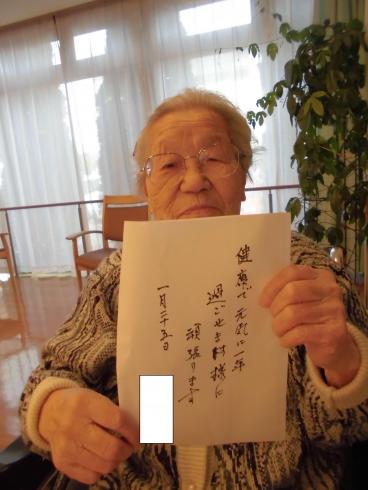 健康で元気に一年
過ごせます様に
頑張ります
一月二十五日